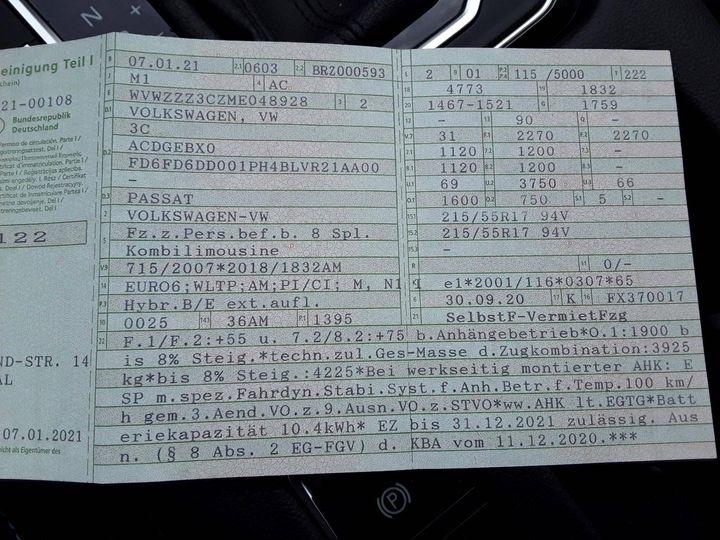 N
einigung Teil I
schein)
21-00108
Bundesrepublik
Deutschland
122
ND-STR. 14
AL
07.01.2021
nicht als Eigentümer des
B 07.01.21 2.1 0603 2.2 BRZ000593
J M1 4 AC
E WVWZZZ3CZME048928 3 2
D.1 VOLKSWAGEN, VW
3C
D.2 ACDGEBX0
FD6FD6DD001PH4BLVR21AA00
-
D.3 PASSAT
2 VOLKSWAGEN-VW
5 Fz.z.Pers.bef.b. 8 Spl.
Kombilimousine
V.9 715/2007*2018/1832AM
14 EURO6;WLTP;AM;PI/CI; M, N1 I
P.3 Hybr.B/E ext.aufl.
10 0025 14.1 36AM P.1 1395
L 2 9 01 P.2 P.4 115 /5000 T 222
18 4773 19 1832
20 1467-1521 G 1759
12 - 13 90 Q -
V.7 31 F.1 2270 F.2 2270
7.1 1120 7.2 1200 7.3 -
8.1 1120 8.2 1200 8.3 -
U.1 69 U.2 3750 U.3 66
O.1 1600 O.2 750 S.1 5 S.2 -
15.1 215/55R17 94V
15.2 215/55R17 94V
15.3 -
R 11 0/-
K e1*2001/116*0307*65
6 30.09.20 17 K 16 FX370017
21 SelbstF-VermietFzg
22 F.1/F.2:+55 u. 7.2/8.2:+75 b.Anhängebetrieb*O.1:1900 b
is 8% Steig.*techn.zul.Ges-Masse d.Zugkombination:3925
kg*bis 8% Steig.:4225*Bei werkseitig montierter AHK: E
SP m.spez.Fahrdyn.Stabi.Syst.f.Anh.Betr.f.Temp.100 km/
h gem.3.Aend.VO.z.9.Ausn.VO.z.STVO*ww.AHK lt.EGTG*Batt
eriekapazität 10.4kWh* EZ bis 31.12.2021 zulässig. Aus
n. (§ 8 Abs. 2 EG-FGV) d. KBA vom 11.12.2020.***
P